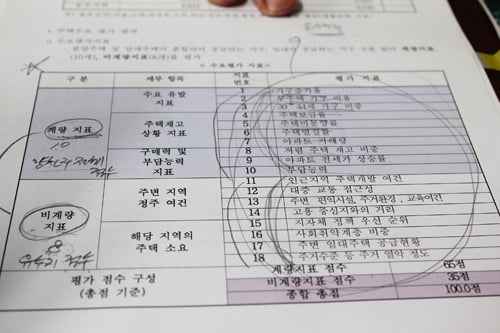 주택수요 평가 결과
수요평가지표
(10개), 비계량지표(8개)를 평가
< 수요평가 지표 >
구 분 세부 항목 지표 번호 평가 지표
계량 지표
수요 유발 지표
1 가구증가율
2 무주택 가구 비율
3 30~44 가구 비중
주택재고 상황 지표
4 주택보급률
5 주택미분양률
6 주택멸실률
7 아파트 거래량
구매력 및 부담능력 지표
8 저렴 주택 재고 비중
9 아파트 전세가 상승률
10 부담능력
비계량 지표
주변 지역 정주 여건
11 인근지역 주택개발 여건
12 대중 교통 접근성
13 주변 편익시설, 주거환경, 교육여건
14 고용 중심지와의 거리
해당 지역의 주택 소요
15 지자체 정책 우선 순위
16 사회취약계층 비중
17 주변 임대주택 공급현황
18 주거수준 등 주거 열악 정도
평가 점수 구성 (총점 기준)
계량지표 점수 65점
비계량지표 점수 35점
종합 총점 100.0점
10
8